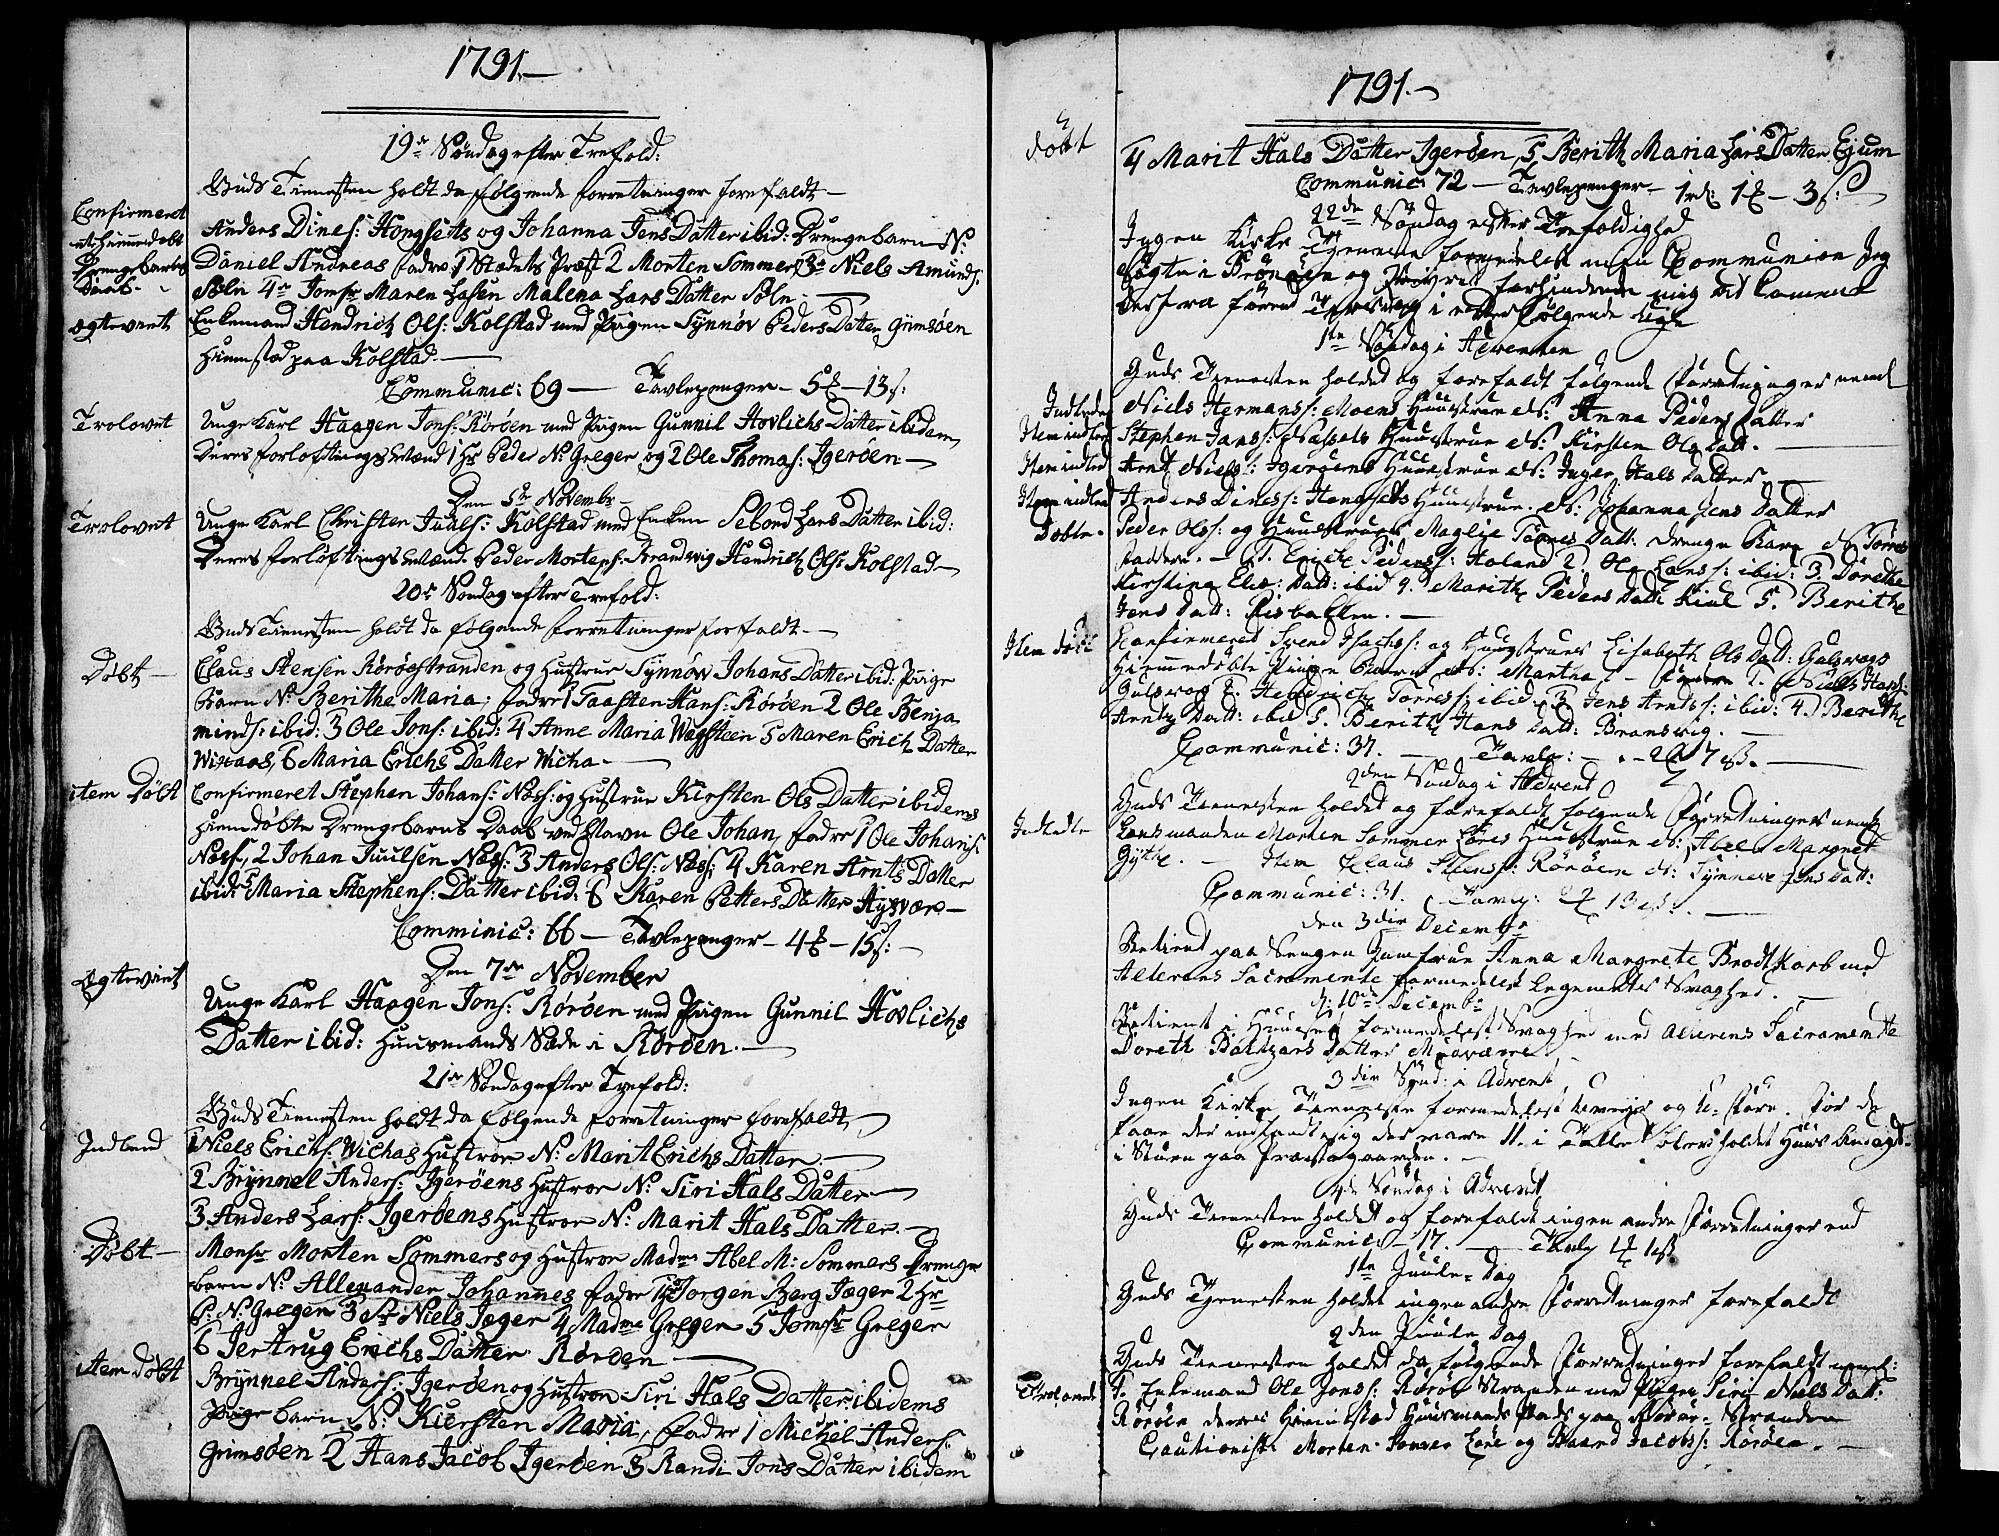 1791.—
19de Søndag efter Trefold:
Guds Tienesten holdt da følgende forretninger forefaldt —
Confirmeret
Anders Dines: Hongsets og Johanna Jens Datter ibid: Drengebarn N:
Daniel Andreas fadre 1 Stædets Præst 2 Morten Sommer 3 Niels Amunds:
Søln 4 Jomfr Maren Lasen Malena Lars Datter Søln. —
ægteviet
Enkemand Hendrich Ols: Kolstad med Pigen Synnøv Peders Datter Grimsøen
Hiemsted paa Kolstad. —
Communic: 69 — Tavlepenger — 5 — 13 s:
Trolovet
Unge Karl Haagen Jons: Rørøen med Pigen Gunnil Hovlichs Datter ibidem
Deres forloftningsmænd 1 Hr Peder N: Greger og 2 Ole Thomas: Igerøen —
Den 5te Novembr —
Trolovet
Unge Karl Christen Juuls: Kolstad med Enken Sebond Lars Datter ibid:
Deres forløftings Mænd Peder Mortens: Brandsvig Hendrich Ols: Kolstad —
20de Søndag efter Trefold:
Guds Tienesten holdt da følgende forretninger forfaldt —
Døbt —
Claus Stensen Rørøestranden og Hustrue Synnøv Johans Datter ibid: Pige
Barn N: Berithe Maria, fadre 1 Taasten Hans: Rørøen 2 Ole Benja
minds: ibid: 3 Ole Jons: ibid: 4 Anne Maria Wegsteen 5 Maren Erich Datter
Wistnes, 6 Maria Erichs Datter Wicha —
item Døbt
Confirmeret Stephen Johans: Næss: og Hustrue Kiersten Ols Datter ibidems
Hiemdøbte Drengebarns Daab ved Navn Ole Johan, fadre 1 Ole Johans:
Næss, 2 Johan Juulsen Næss: 3 Anders Ols: Næss: 4 Karen Arnts Datter
ibid: 5 Maria Stephens: Datter ibid: 6 Karen Petters Datter Hysvær —
Comminic: 66 — Tavlepenger — 4 — 15 s: —
Den 7de November
Ægteviet
Unge Karl Haagen Jons: Rørøen med Pigen Gunnil Hovlichs
Datter ibid: Huusmands Sæde i Rørøen. —
21de Søndag efter Trefold:
Guds Tienesten holdt da følgende forretninger forefaldt,
Indleed
1 Niels Erichs: Wichas Hustroe N: Marit Erichs Datter —
2 Brynnel Anders: Igerøens Hustroe N: Siri Hals Datter —
3 Anders Lars: Igerøens Hustroe N: Marit Hals Datter —
Døbt —
Monsr Morten Sommers og Hustroe Madme Abel M: Sommers Drenge
barn N: Allexander Johannes fadre 1 Hr Jorgen Berg Jæger 2 Hr
P: N: Greger 3 Sr Niels Jæger 4 Madme Greger 5 Jomfr Greger
6 Jertrug Erichs Datter Rørøen —
item døbt
Brynnel Anders: Igerøen og Hustroe Siri Hals Datter ibidems
Pigebarn N: Kiersten Maria, fadre 1 Michel Anders:
Grimsøen 2 Hans Jacob Igerøen 3 Randi Jons Datter ibidem
1791.—
døbt
4 Marit Hals Datter Igerøen, 5 Berith Maria Lars Datter Ejum
Communic: 72 — Tavlepenger — 1 rd: 1 — 3 s: —
22de Søndag efter Trefoldighed
Ingen Kirke Tieneste formedelst min Communion jeg
søgte i Brønøen og forhindrede mig at komme
derfra førend i efterfølgende Uge
1ste Søndag i Adventen
Guds Tienesten holdet og forefaldt følgende Forretninger neml
Indledes
Niels Hermans: Moens Huustrue N: Anna Peders Datter
Item indled
Stephen Jans: Næssets Huustrue N: Kirsten Ols Datt. —
Item indled
Arnt Niels: Igerøens Huustrue N: Inger Hals Datter —
Item indled
Anders Dines: Hongsets Huustrue N: Johanna Jens Datter
Døbte.
Peder Ols: og Huustrues Maglie Tørres Datt: Drenge Barn N: Tørres
faddere. — 1. Erich Peders: Holand 2. Ole Lars: ibid: 3. Dorethe
Kirstina Datt: ibid 4. Marithe Peders Datt: 5. Berithe
Jens Datt: Risbakken. —
Item døbt
Confirmeret Svend Isachs: og Huustrues Lisabeth Ols Datt: Gulsvogs
Hiemmedøbte Pige Barn N: Martha. — 1. Niels Hans:
Gulsvog 2. Hendrich Torres: ibid. 3. Jens Arnts: ibid: 4. Berithe
Arnts Datt: ibid 5. Berith Hans Datt: Bransvig. —
Communic: 37. — Tavlp: — 2 7 s. —
2den Søndag i Advent
Guds Tienesten holdet og forefaldt følgende Forretninger neml:
Indledte
Lensmanden Morten Sommer Huustrue N: Abel Margret
Gythe. — Item Claus Stens: Rørøen N: Synneve Jens Datt:
Communic: 31. Tavlp: 13 s. —
Den 3die Decembr
Betient paa Sengen Jomfrue Anna Margrete Brodtkorb med
Alterens Sacramente formedelst Legemets Svaghed. —
d: 10de Decembr
Betient i Huuset formedelst Svaghed med Alterens Sacramente
Doreth Baltzars Datter
3die Sønd: i Advent
Ingen Kirke Tieneste formedelst og
faae der indfandt sig der vare 11 i Tallet blev holdet Huus Andagt
i Stuen paa Præstegaarden. —
4de Søndag i Advent
Guds Tienesten holdet og forefaldt ingen andre Forretninger end
Communic — 17. — Tavlp 4 1 s
1ste Juule-Dag
Guds Tienesten holdet ingen andre Forretninger forefaldt
2den Juule Dag
Guds Tienesten holdet da følgende Forretninger forefaldt neml:
Trolovet
1. Enkemand Ole Jons: Rørøe Stranden med Pigen Siri Niels Datt:
Rørøen deres Hiemsted Huusmands Plads paa Rørøe-Stranden
Cautionist: Morten Sommer og Baard Jacobs: Rørøen. —